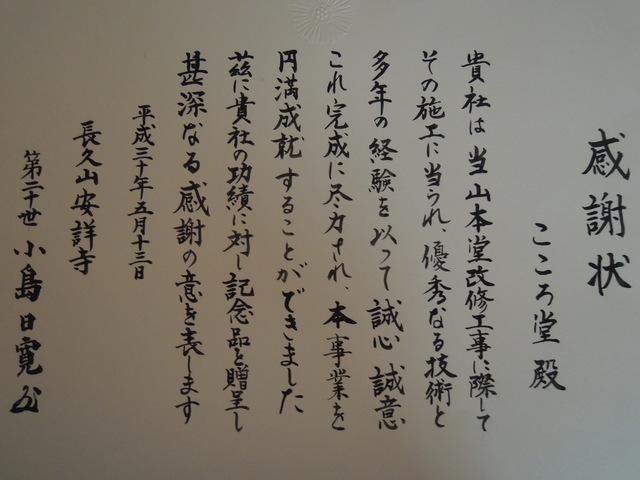 感謝状
こころ堂 殿
貴社は当山本堂改修工事に際して
その施工に当られ、優秀なる技術と
多年の経験を以って誠心誠意
これ完成に尽力され、本事業を
円満成就することができました
茲に貴社の功績に対し記念品を贈呈し
甚深なる感謝の意を表します
平成三十年五月十三日
長久山安詳寺
第二十世 小島日寛